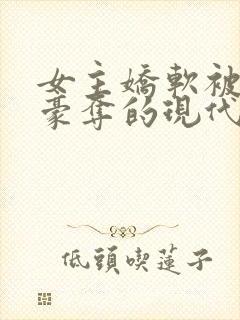 女主嬌軟被
豪奪的現代
低頭喫蓮子